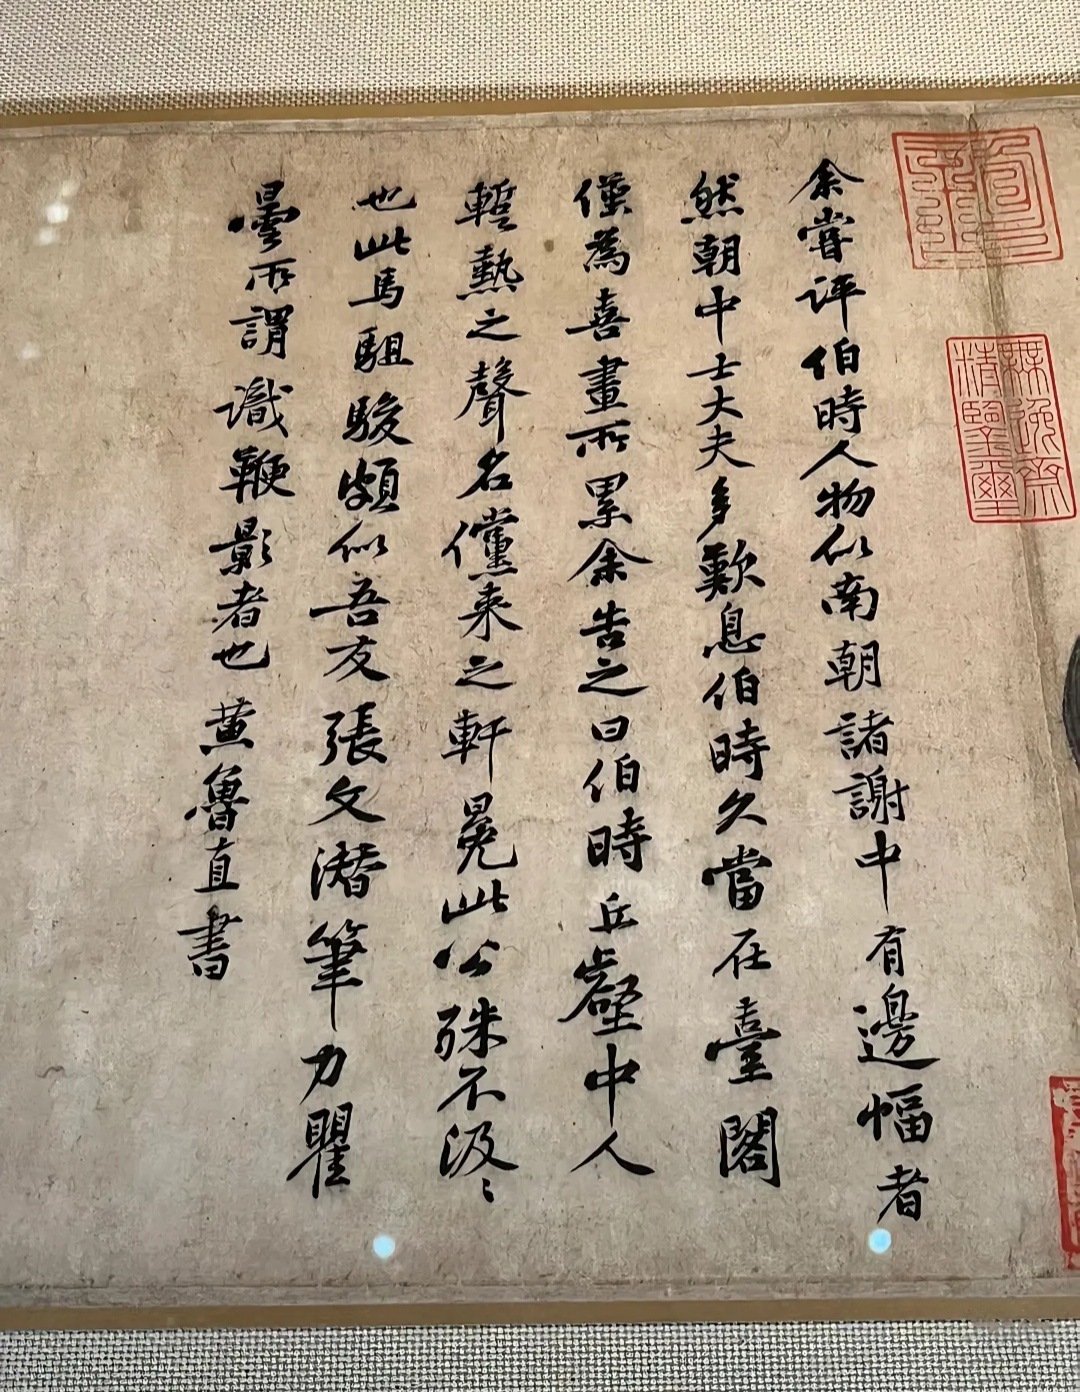 余嘗評伯時人物似南朝諸謝中有邊幅者
然朝中士大夫多歎息伯時久當在臺閣
僅為喜畫所累余告之曰伯時丘壑中人
蹔熱之聲名儻来之軒冕此公殊不汲〻
也此馬駔駿頗似吾友張文潛筆力瞿
曇所謂識鞭影者也黄魯直書
無逸齋
精鑒璽